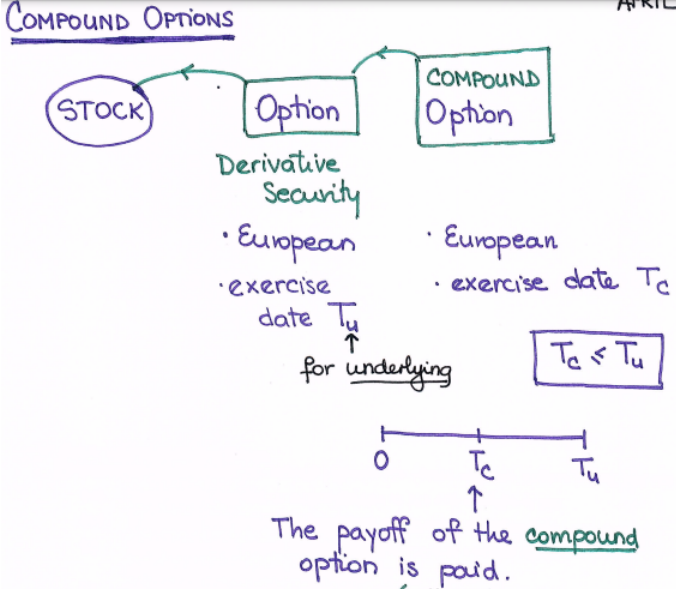 COMPOUND OPTIONS
STOCK
Option
COMPOUND
Option
Derivative
Security
• European
• exercise
date Tu
↑
for underlying
• European
• exercise date Tc
Tc ≤ Tu
0 Tc Tu
↑
The payoff of the compound
option is paid.